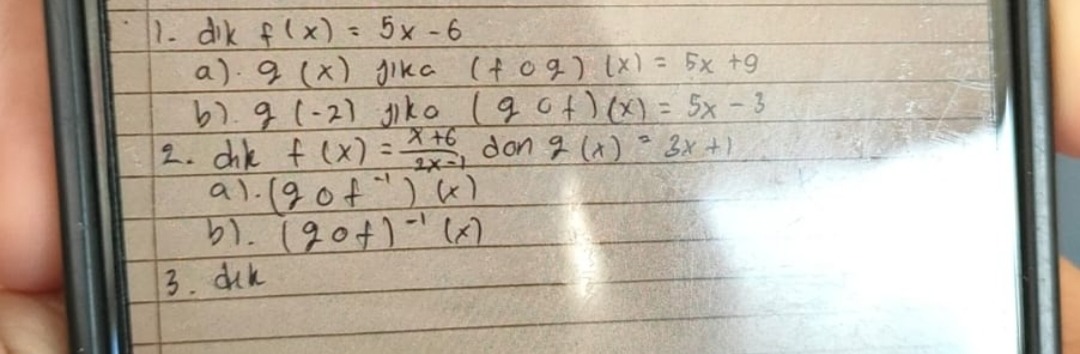 1. dik f(x) = 5x - 6
a). g (x) jika (f o g) (x) = 5x + 9
b). g (-2) jika (g o f) (x) = 5x - 3
2. dik f (x) = x+6/2x-1 dan g (x) = 3x + 1
a). (g o f⁻¹) (x)
b). (g o f)⁻¹ (x)
3. dik